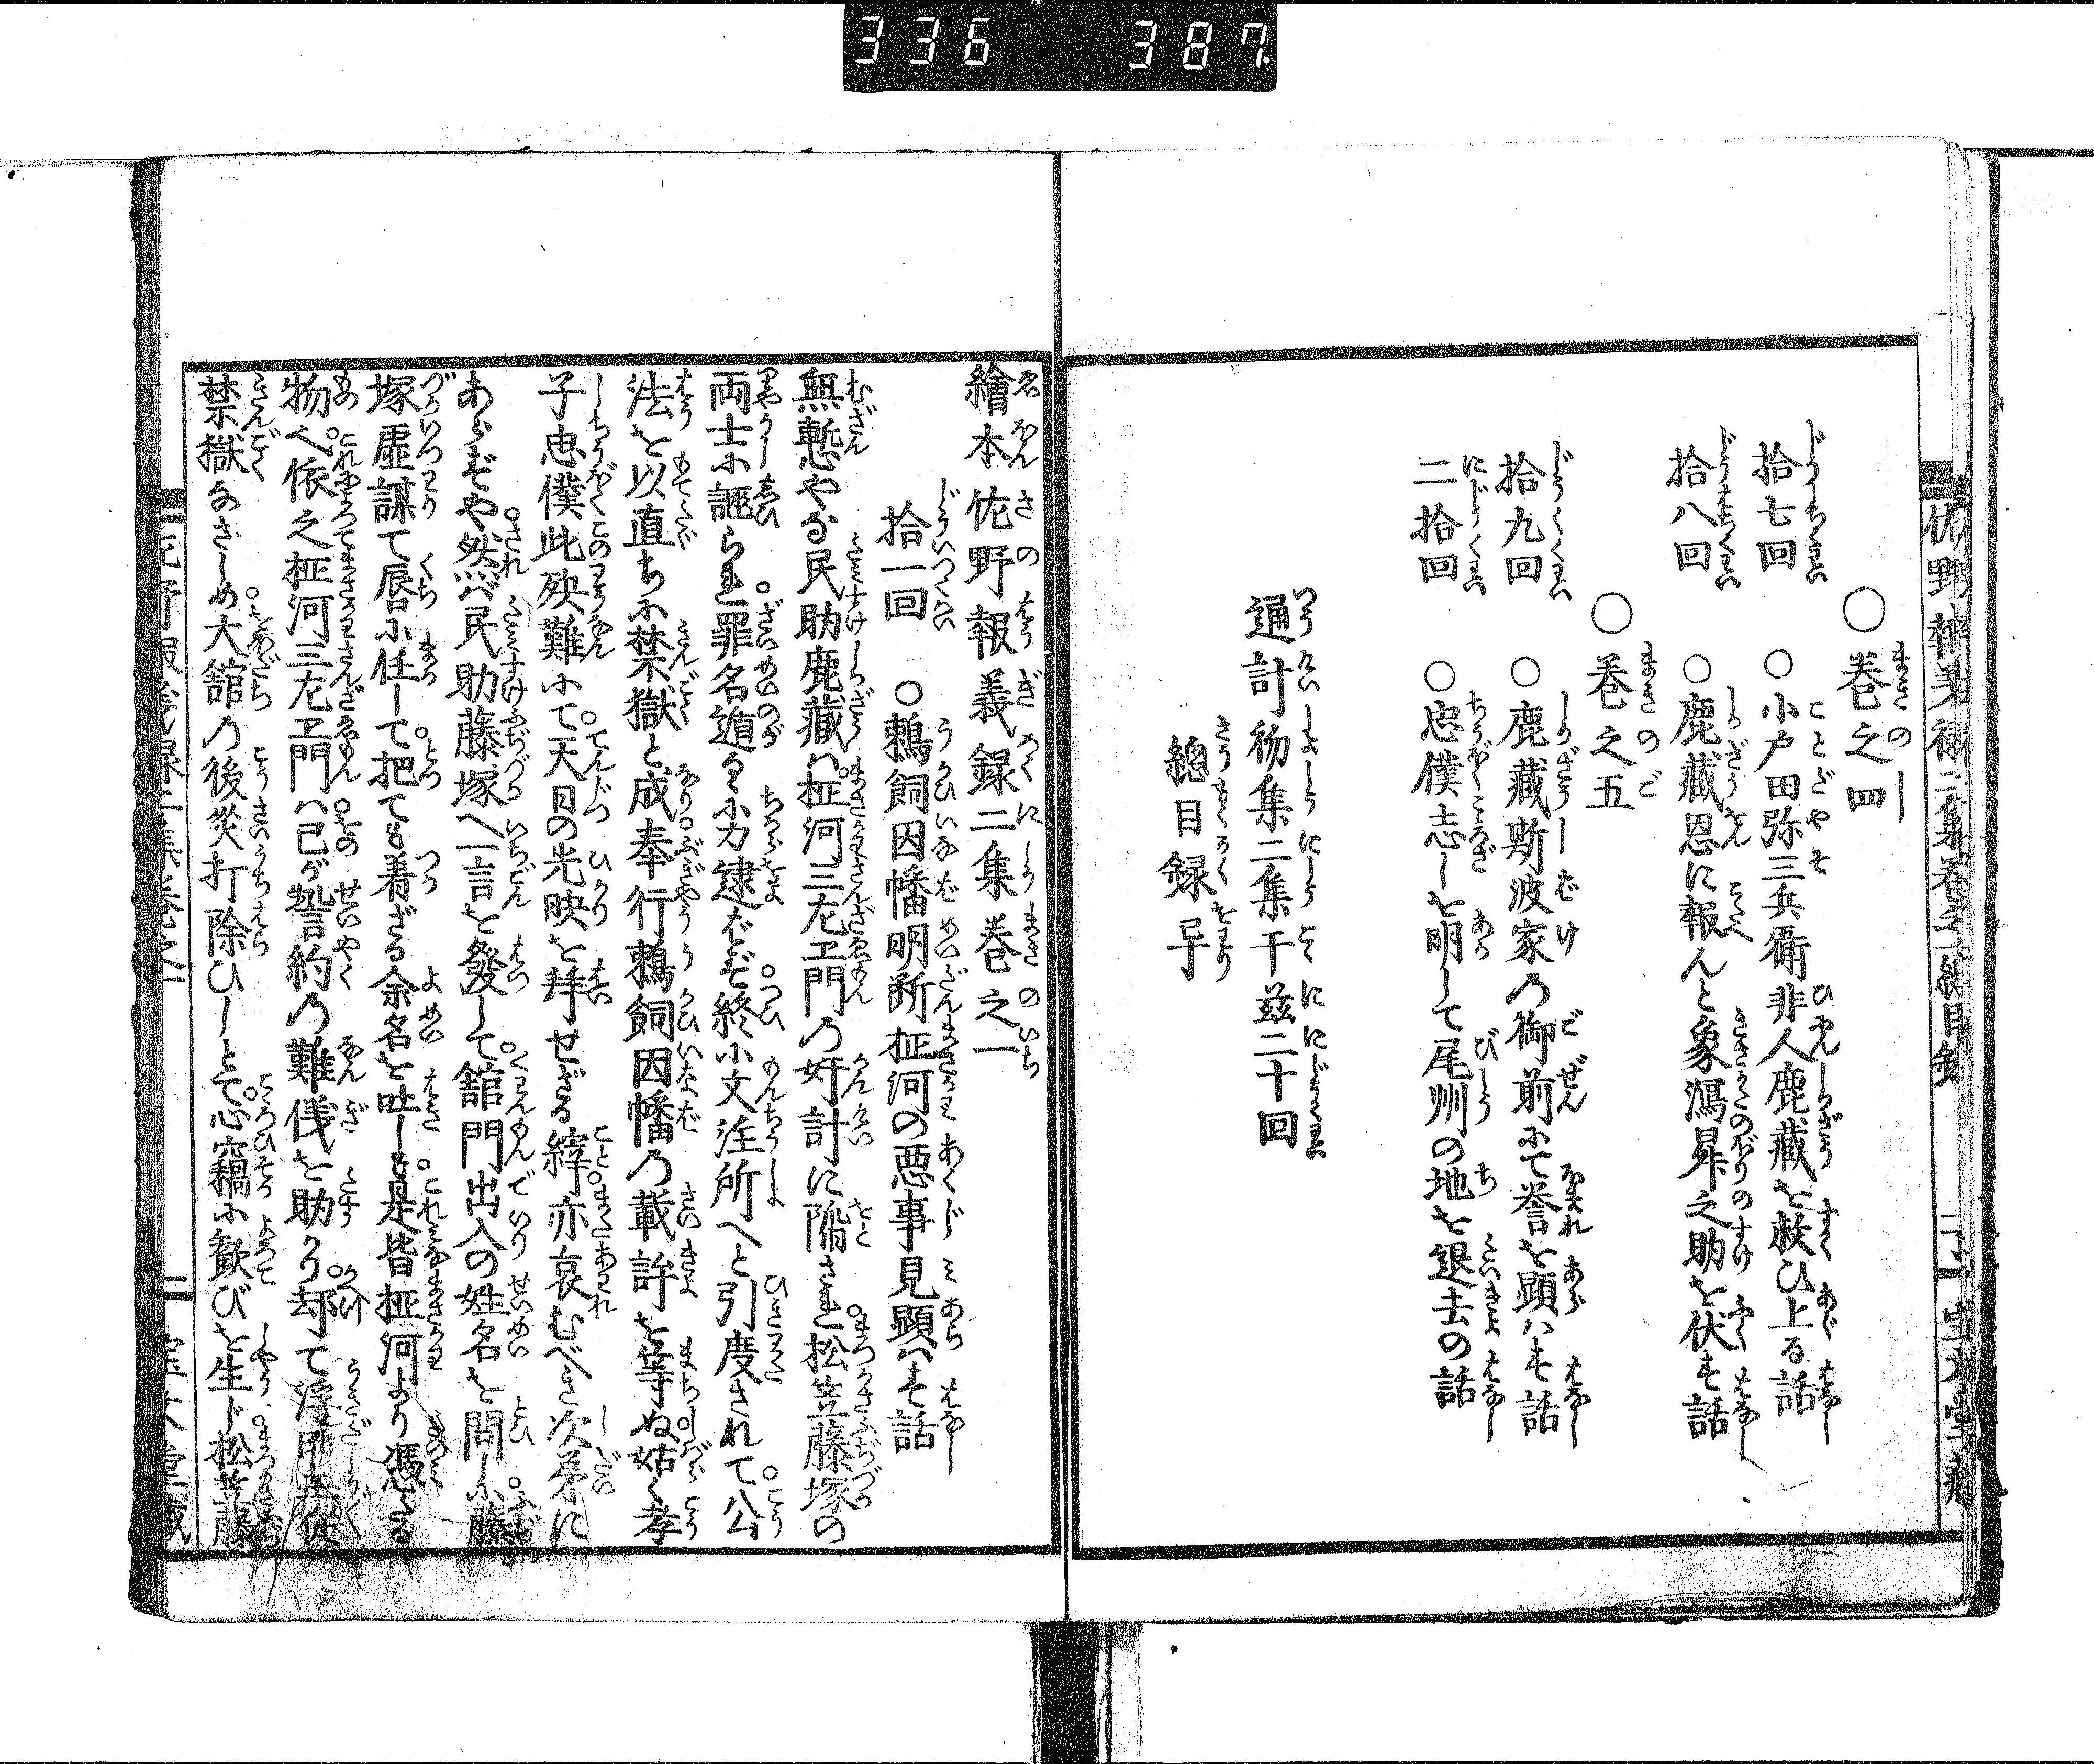 336 387
佐野報義録二集巻之一總目録
○巻之四
拾七回 ○小戸田弥三兵衞非人鹿藏を救ひ上る話
拾八回 ○鹿藏恩に報んと象潟昇之助を伏す話
○巻之五
拾九回 ○鹿藏斯波家の御前にて誉を顕はす話
二拾回 ○忠僕志しを明して尾州の地を退去の話
通計初集二集干茲二十回
總目録畢
繪本佐野報義録二集巻之一
拾一回 ○鵜飼因幡明断柾河の悪事見顕へす話
無慙やな民助鹿藏ハ柾河三左エ門の奸計に陥され松笠藤塚の
両士に誣られ罪名遁るに力逮ばず終に文注所へと引度されて公
法を以直ちに禁獄と成奉行鵜飼因幡の載許を等ぬ姑く孝
子忠僕此殃難にて天日の光映を拝せざる縡亦哀むべき次第に
あらずや然バ民助藤塚へ一言を發して舘門出入の姓名を問しに藤
塚虚謀て唇に任して把ても着ざる余名を吐しも是皆柾河より憑たる
物へ依之柾河三左エ門ハ己が誓約の難儀を助かり却て浮
禁獄なさしめ大舘の後災打除ひしとて心竊に歓びを生じ松笠藤
佐野報義録二集巻之一